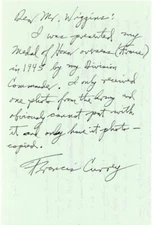 Dear Mr. Wiggins:
I was presented my
Medal of Honor overseas (France)
in 1945 by my Division
Commander. I only received
one photo from the Army and
obviously cannot part with
it and only have it photo-
copied.
Francis Currey